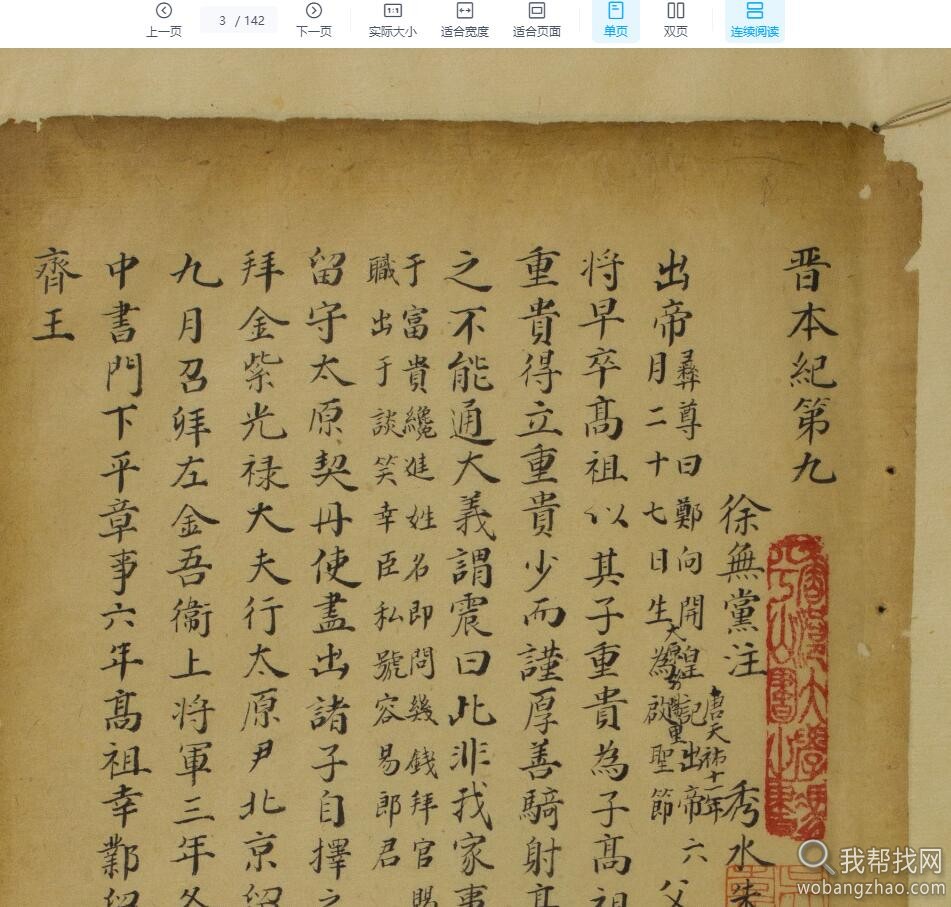 上一页 3 / 142 下一页 实际大小 适合宽度 适合页面 单页 双页 连续阅读
晋本紀第九
徐無黨注 秀水朱
唐天祐十一年
出帝
彛尊曰鄭向開皇記出帝六
月二十七日生為啟聖節
父
将早卒髙祖以其子重貴為子髙祖
重貴得立重貴少而謹厚善騎射髙
之不能通大義謂震曰此非我家事
于富貴纔進姓名即問幾錢拜官賜
職出于談笑幸臣私號容易郎君
留守太原契丹使盡出諸子自擇之
拜金紫光禄大夫行太原尹北京
九月召拜左金吾衞上将軍三年冬
中書門下平章事六年髙祖幸鄴
齊王
我帮找网
wobangzhao.com